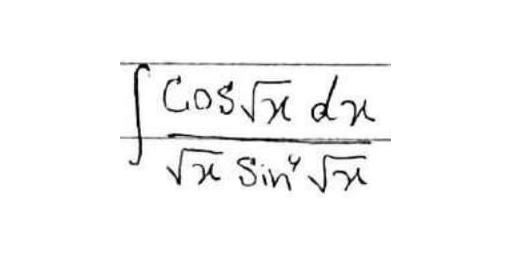 ∫ cos√x dx
√x sin⁴ √x